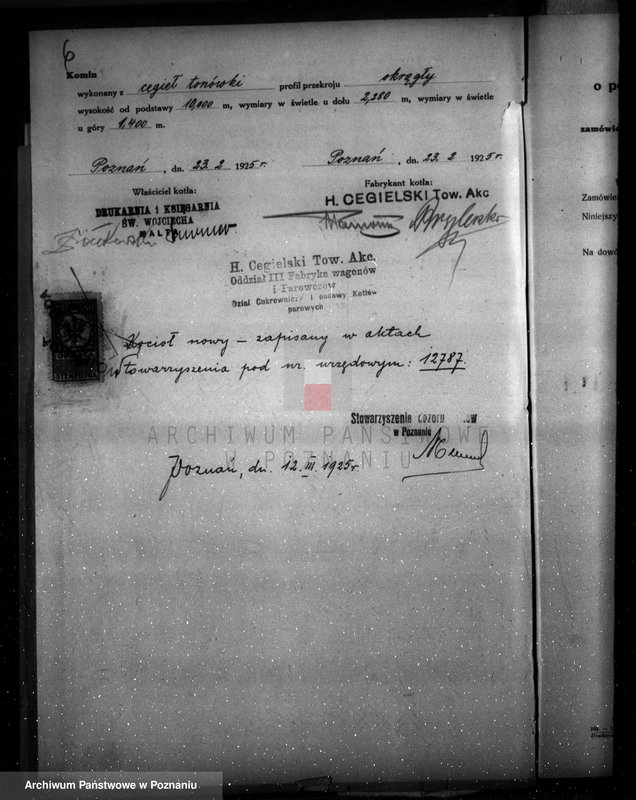 6
Komin
wykonany z cegieł tonówki profil przekroju okrągły
wysokość od podstawy 10,000 m, wymiary w świetle u dołu 2,380 m, wymiary w świetle
u góry 1,400 m.
Poznań, dn. 23. 2 1925 r. Poznań, dn. 23. 2 1925 r.
Właściciel kotła: Fabrykant kotła:
DRUKARNIA i KSIĘGARNIA
ŚW. WOJCIECHA
H. CEGIELSKI Tow. Akc
H. Cegielski Tow. Akc.
Oddział III Fabryka wagonów
i Parowozów
Dział Cukrowniczy i budowy Kotłów
parowych
Kocioł nowy – zapisany w aktach
Stowarzyszenia pod nr. urzędowym: 12787.
Stowarzyszenie dozoru
w Poznaniu
Poznań, dn. 12. III. 1925 r.
ARCHIWUM PAŃSTWOWE
W POZNANIU
o p
zamówie
Zamówie
Niniejszy
Na dowó
Archiwum Państwowe w Poznaniu